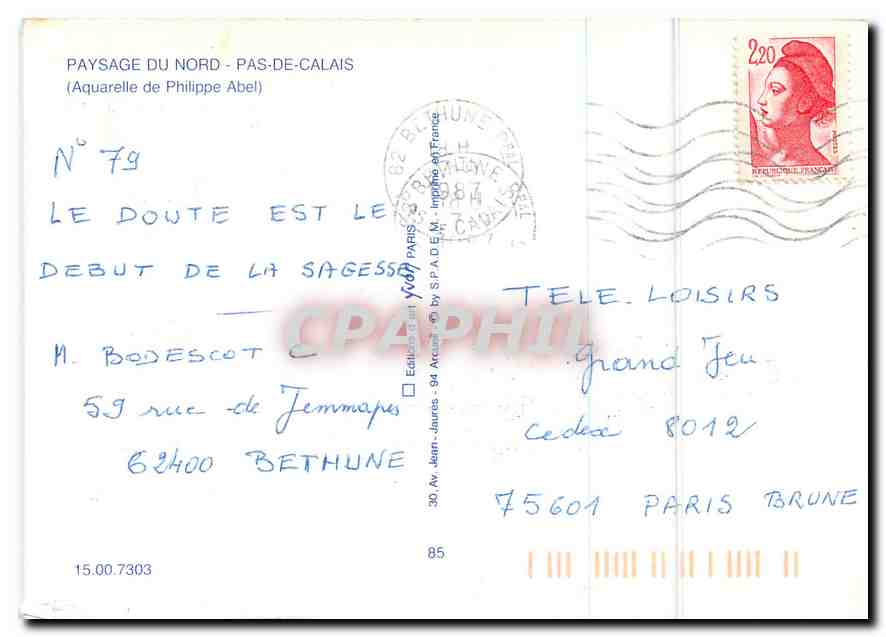 PAYSAGE DU NORD - PAS-DE-CALAIS
(Aquarelle de Philippe Abel)
N° 79
LE DOUTE EST LE
DEBUT DE LA SAGESSE
M. BODESCOT C
59 rue de Jemmapes
62400 BETHUNE
15.00.7303
Editions d'art yvon PARIS
30, Av. Jean-Jaurès - 94 Arcueil - © by S.P.A.D.E.M. - Imprimé en France
85
62 BETHUNE PPAL
2,20
POSTES
REPUBLIQUE FRANÇAISE
TELE-LOISIRS
Grand Jeu
Cedex 8012
75601 PARIS BRUNE
CPAPHIL